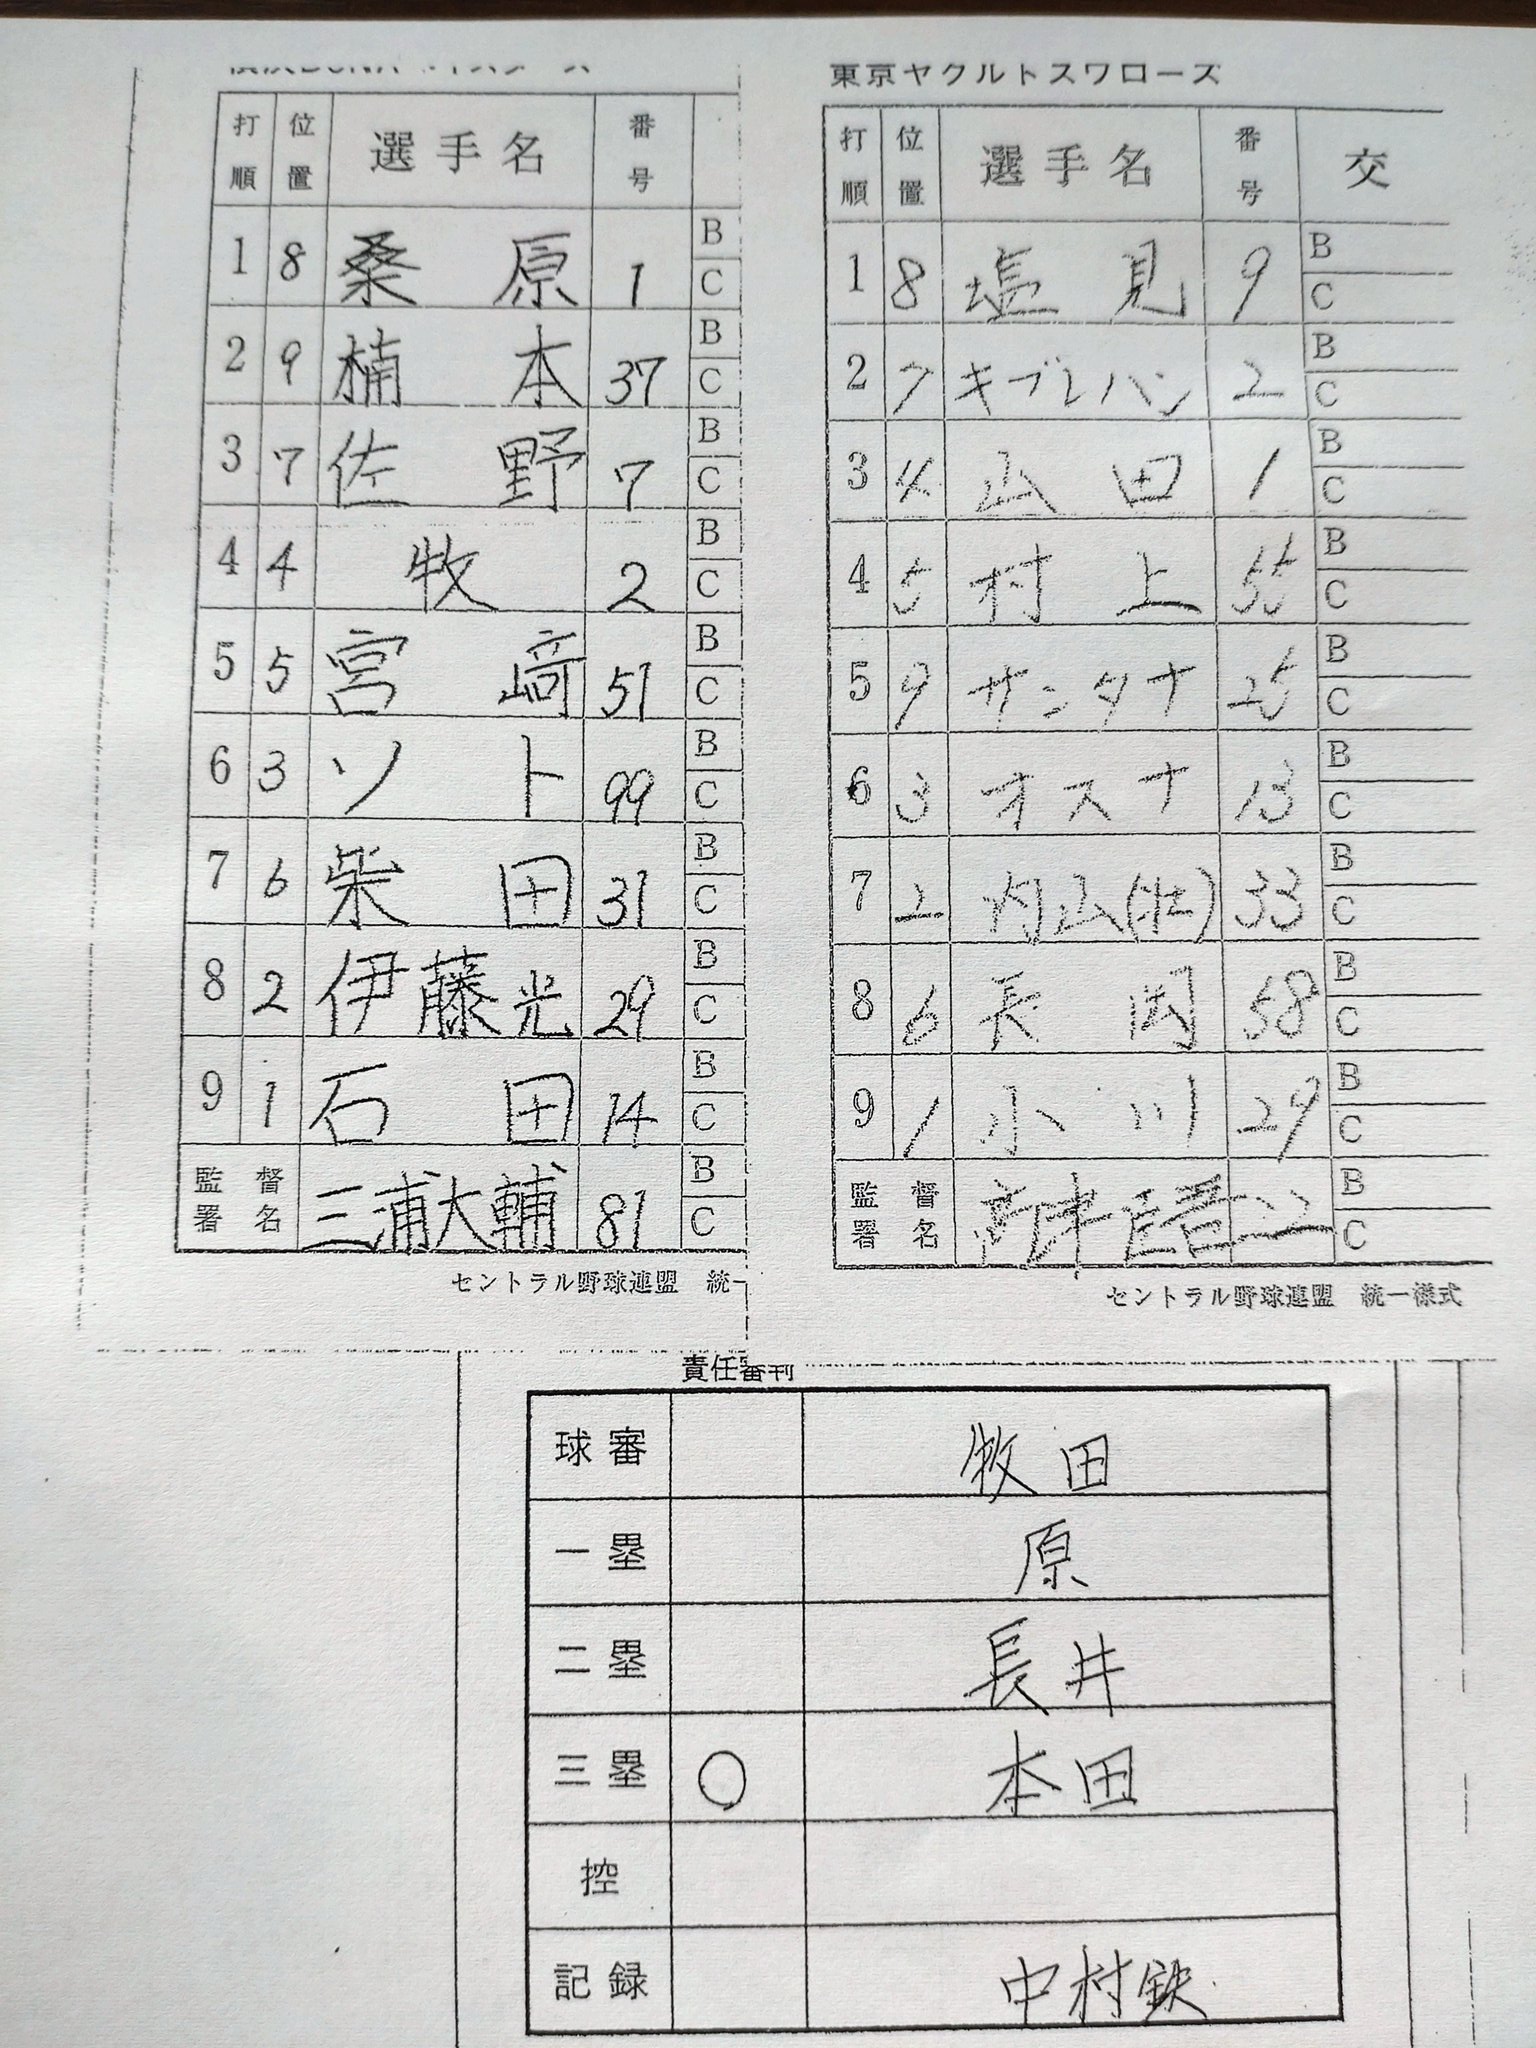 東京ヤクルトスワローズ
打順 位置 選手名 番号
1 8 桑原 1 B C
2 9 楠本 37 B C
3 7 佐野 7 B C
4 4 牧 2 B C
5 5 宮﨑 51 B C
6 3 ソト 99 B C
7 6 柴田 31 B C
8 2 伊藤光 29 B C
9 1 石田 14 B C
監督署名 三浦大輔 81 B C
セントラル野球連盟 統一
打順 位置 選手名 番号 交
1 8 塩見 9 B C
2 7 キブレハン 2 B C
3 4 山田 1 B C
4 5 村上 55 B C
5 9 サンタナ 25 B C
6 3 オスナ 13 B C
7 2 内山(壮) 33 B C
8 6 長岡 58 B C
9 1 小川 29 B C
監督署名 高津臣吾 22 B C
セントラル野球連盟 統一様式
責任審判
球審 牧田
一塁 原
二塁 長井
三塁 ○ 本田
控
記録 中村鉄